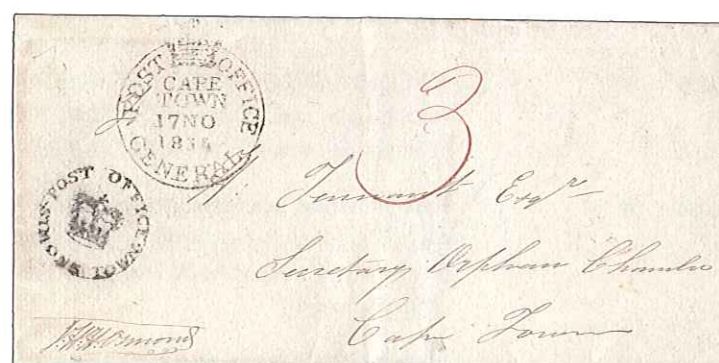 POST OFFICE
CAPE
TOWN
17NO
1834
GENERAL
3
POST OFFICE SIMONS TOWN
Tennant Esqr
Secretary Orphan Chamber
Cape Town